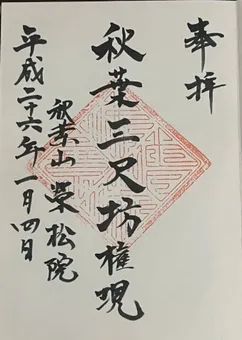 奉拝
秋葉三尺坊権現
秋葉山 栄松院
平成二十六年一月四日